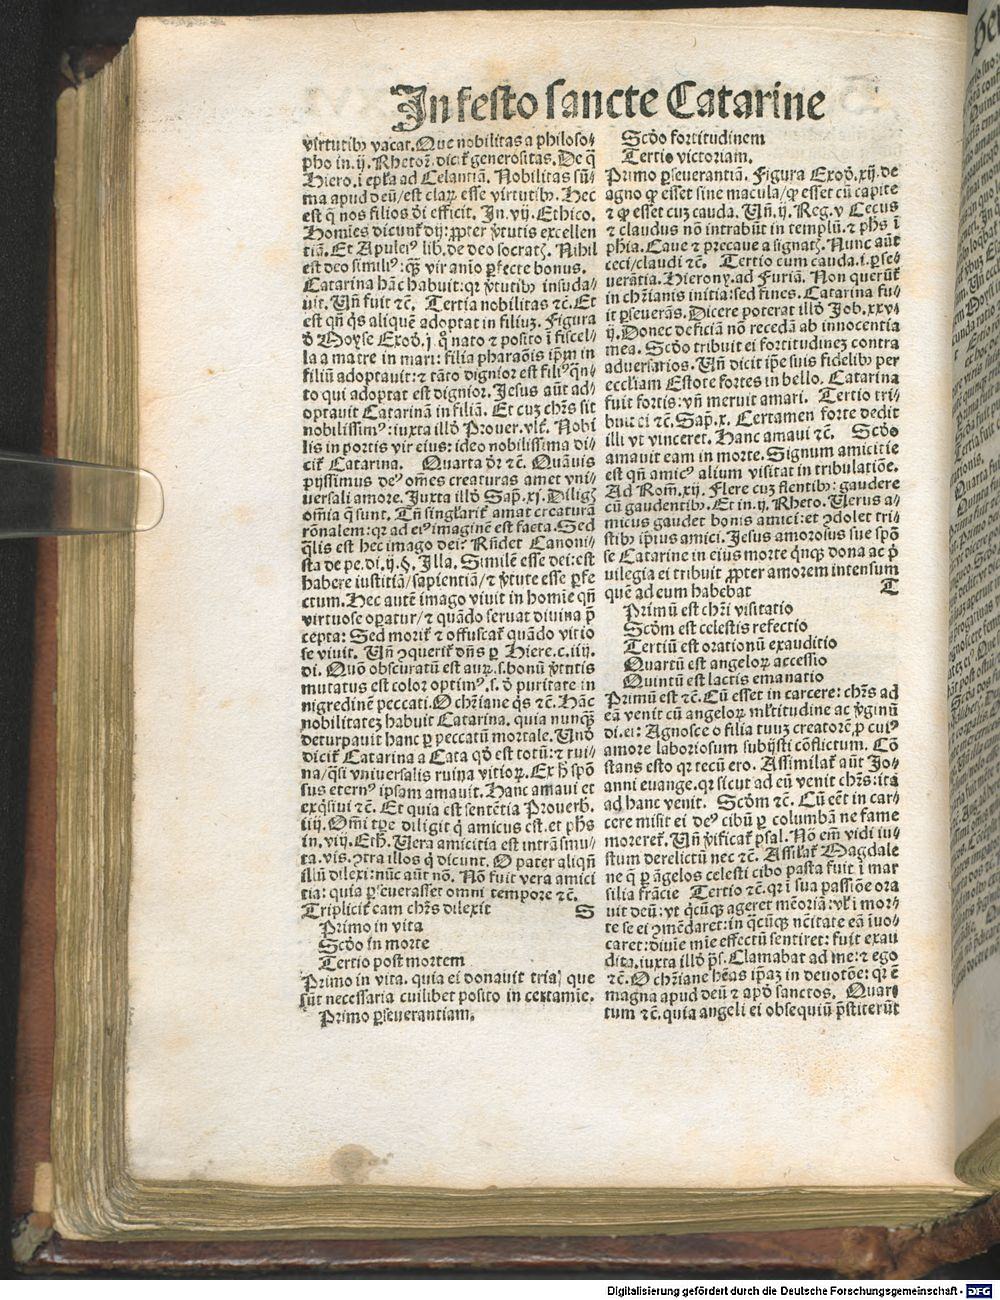 In festo sancte Catarine
virtutibꝰ vacat. Que nobilitas a philoso⸗
pho in .ij. Rhetoꝝ. dicit̃ generositas. De q̃
Hiero. i epl̃a ad Celantiã. Nobilitas sũ⸗
ma apud deũ / est claꝝ esse virtutibꝰ. Hec
est q̃ nos filios d̃i efficit. In .vij. Ethico.
Homĩes dicunt̃ dij: ꝓpter v̓tutis excellen
tiã. Et Apuleiꝰ lib. de deo socratꝭ. Nihil
est deo similiꝰ: qꝫ̃ vir anĩo ꝑfecte bonus.
Catarina hãc habuit: qꝛ v̓tutibꝰ insuda⸗
uit. Uñ fuit ⁊c̃. Tertia nobilitas ⁊c̃. Et
est qñ q̃s aliquẽ adoptat in filiuꝫ. Figura
d̓ Moyse Exod̓. j. q̃ nato ⁊ posito ĩ fiscel⸗
la a matre in mari: filia pharaõis ip̃m in
filiũ adoptauit: ⁊ tãto dignior est filiꝰ q̃n⸗
to qui adoptat est dignior. Jesus aũt ad⸗
optauit Catarinã in filiã. Et cuꝫ chr̃s sit
nobilissimꝰ: iuxta illd̓ Prouer. vlt̃. Nobi
lis in portis vir eius: ideo nobilissima di⸗
cit̃ Catarina. Quarta d̓r ⁊c̃. Quãuis
pijssimus deꝰ om̃es creaturas amet vni⸗
uersali amore. Juxta illd̓ Sap̃. xj. Diligꝭ
om̃ia q̃ sunt. Tñ singl̃arit̃ amat creaturã
rõnalem: qꝛ ad eiꝰ imaginẽ est facta. Sed
q̃lis est hec imago dei? Rñdet Canoni⸗
sta de pe. di. ij. §. Illa. Similẽ esse dei: est
habere iustitiã / sapientiã / ⁊ v̓tute esse ꝑfe
ctum. Hec autẽ imago viuit in homĩe qñ
virtuose oꝑatur / ⁊ quãdo seruat diuina p̃
cepta: Sed morit̃ ⁊ offuscat̃ quãdo vitio
se viuit. Uñ ꝯquerit̃ dñs ꝑ Hiere. c. iiij.
di. Quõ obscuratũ est auꝝ .s. bonũ v̓tutis
mutatus est color optimꝰ .s. d̓ puritate in
nigredinẽ peccati. O chr̃iane q̃s ⁊c̃. Hãc
nobilitateꝫ habuit Catarina. quia nunqꝫ̃
deturpauit hanc ꝑ peccatũ mortale. Und̓
dicit̃ Catarina a Cata qd̓ est totũ: ⁊ rui⸗
na / q̃si vniuersalis ruina vitioꝝ. Ex h̓ spõ
sus eternꝰ ipsam amauit. Hanc amaui et
exq̃siui ⁊c̃. Et quia est sentẽtia Prouerb.
iiij. Om̃i tꝑe diligit q̃ amicus est. et ph̃s
in .viij. Eth̃. Uera amicitia est intrãsmu⸗
ta. vis. ꝯtra illos q̃ dicunt. O pater aliqñ
illũ dilexi: nũc aũt nõ. Nõ fuit vera amici
tia: quia ꝑseuerasset omni tempore ⁊c̃.
Triplicit̃ eam chr̃s dilexit S
Primo in vita
Scd̓o in morte
Tertio post mortem
Primo in vita. quia ei donauit tria / que
sũt necessaria cuilibet posito in certamĩe.
Primo ꝑseuerantiam.
Scd̓o fortitudinem
Tertio victoriam.
Primo ꝑseuerantiã. Figura Exod̓. xij. de
agno ꝙ esset sine macula / ꝙ esset cũ capite
⁊ ꝙ esset cuꝫ cauda. Uñ .ij. Reg. v. Cecus
⁊ claudus nõ intrabũt in templũ. ⁊ ph̃s ĩ
phia. Caue ⁊ precaue a signatꝭ. Nunc aũt
ceci / claudi ⁊c̃. Tertio cum cauda .i. ꝑse⸗
uerãtia. Hierony. ad Furiã. Non querũt̃
in chr̃ianis initia: sed fines. Catarina fu⸗
it ꝑseuerãs. Dicere poterat illd̓ Job. xxv⸗
ij. Donec deficiã nõ recedã ab innocentia
mea. Scd̓o tribuit ei fortitudineꝫ contra
aduersarios. Uñ dicit ip̃e suis fidelibꝰ per
eccl̃iam Estote fortes in bello. Catarina
fuit fortis: vñ meruit amari. Tertio tri⸗
buit ei ⁊c̃. Sap̃. x. Certamen forte dedit
illi vt vinceret. Hanc amaui ⁊c̃. Scd̓o
amauit eam in morte. Signum amicitie
est qñ amicꝰ alium visitat in tribulatiõe.
Ad Rom̃. xij. Flere cuꝫ flentibꝰ: gaudere
cũ gaudentibꝰ. Et in .ij. Rheto. Uerus a⸗
micus gaudet bonis amici: et ꝯdolet tri⸗
stibꝰ ip̃ius amici. Jesus amorosus sue spõ
se Catarine in eius morte q̃nqꝫ dona ac p̃
uilegia ei tribuit ꝓpter amorem intensum
quẽ ad eum habebat T
Primũ est chr̃i visitatio
Scd̓m est celestis refectio
Tertiũ est orationũ exauditio
Quartũ est angeloꝝ accessio
Quintũ est lactis emanatio
Primũ est ⁊c̃. Cũ esset in carcere: chr̃s ad
eã venit cũ angeloꝝ ml̃titudine ac v̓ginũ
di. ei: Agnosce o filia tuuꝫ creatorẽ ꝓ cuiꝰ
amore laboriosum subijsti cõflictum. Cõ
stans esto qꝛ tecũ ero. Assimilat̃ aũt Jo⸗
anni euange. qꝛ sicut ad eũ venit chr̃s: ita
ad hanc venit. Scd̓m ⁊c̃. Cũ eẽt in car⸗
cere misit ei deꝰ cibũ ꝑ columbã ne fame
moreret̃. Uñ v̓ificat̃ psal. Nõ em̃ vidi iu⸗
stum derelictũ nec ⁊c̃. Assil̃at̃ Magdale
ne q̃ ꝑ ãgelos celesti cibo pasta fuit ĩ mar
silia frãcie Tertio ⁊c̃. qꝛ ĩ sua passiõe ora
uit deũ: vt q̃cũqꝫ ageret mẽoriã: vl̃ ĩ mor⸗
te se ei ꝯmẽdaret: in q̃cũqꝫ nc̃itate eã ĩuo⸗
caret: diuĩe mĩe effectũ sentiret: fuit exau
dita. iuxta illd̓ p̃s. Clamabat ad me: ⁊ ego
⁊c̃. O chr̃iane hẽas ip̃aꝫ in deuotõe: qꝛ ẽ
magna apud deũ ⁊ apd̓ sanctos. Quar⸗
tum ⁊c̃. quia angeli ei obsequiũ p̃stiterũt
Digitalisierung gefördert durch die Deutsche Forschungsgemeinschaft - DFG